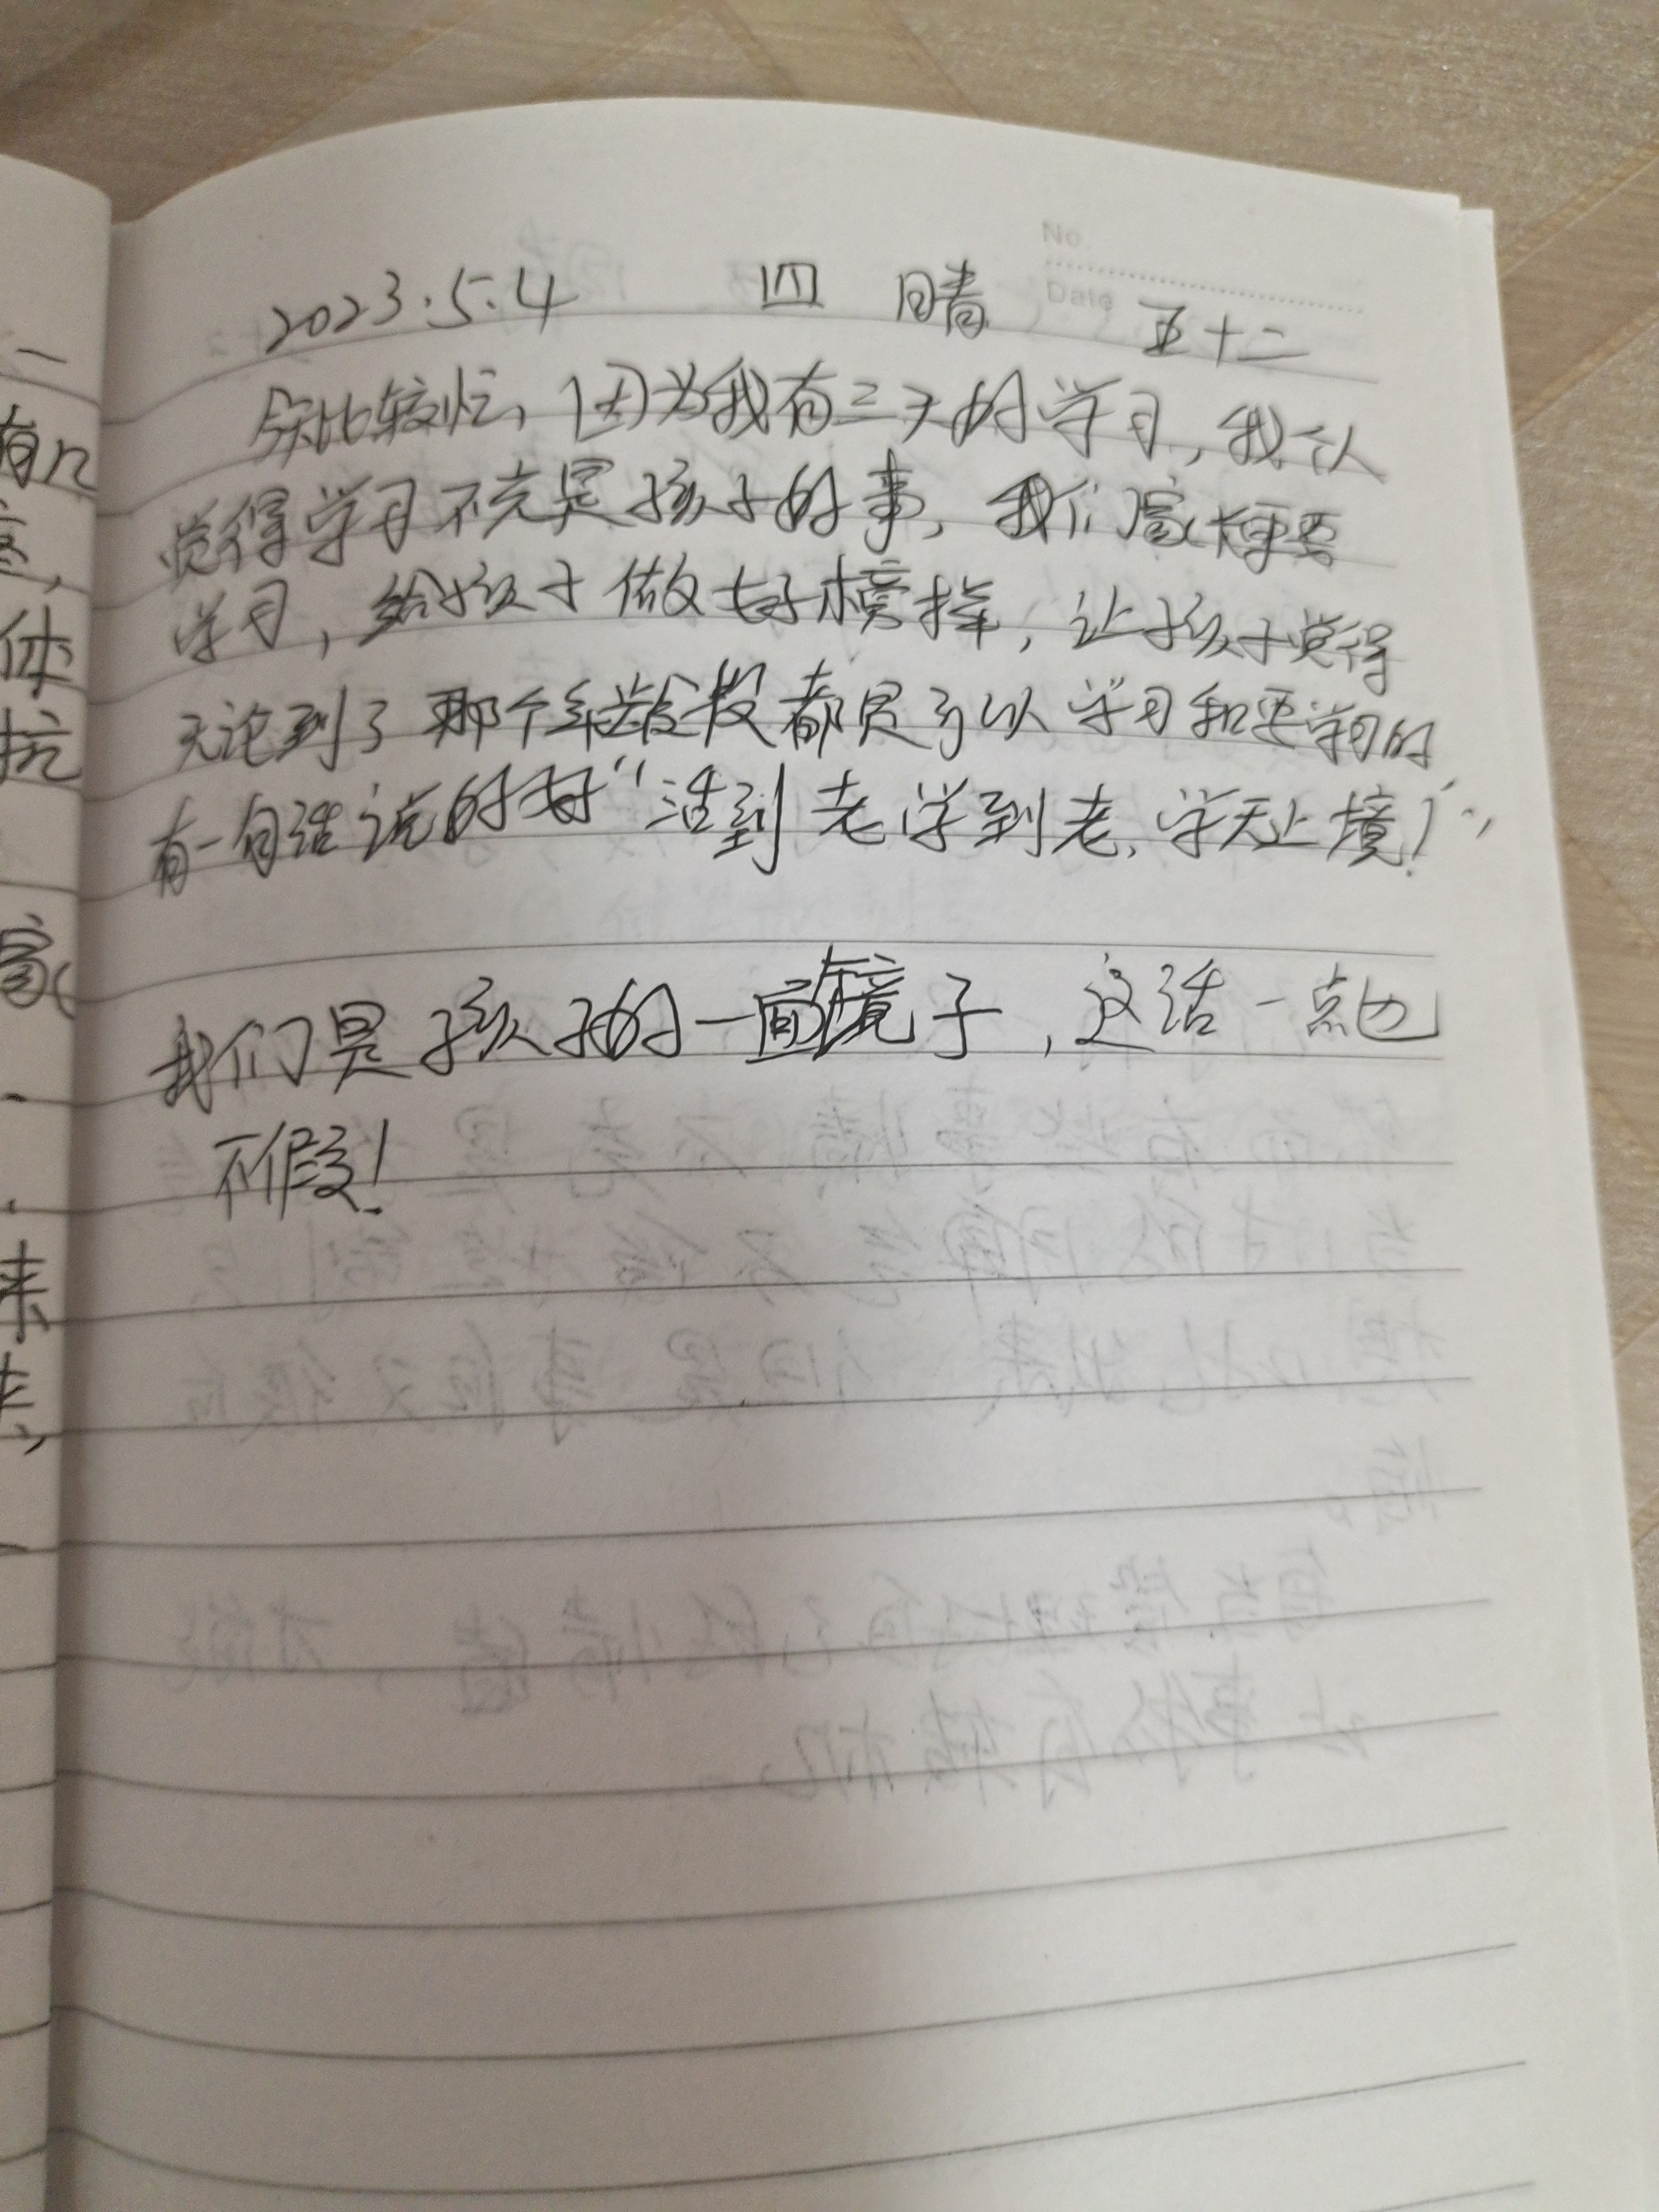 No
Date
2023.5.4 四 晴 五十二
今天比较忙，因为我有三天的学习，我认
觉得学习不光是孩子的事，我们家长更要
学习，给孩子做好榜样，让孩子觉得
无论到了那个年龄段都是可以学习和要学习的
有一句话说的好“活到老学到老，学无止境！”
我们是孩子的一面镜子，这话一点也
不假！
有几
体
抗
家
来